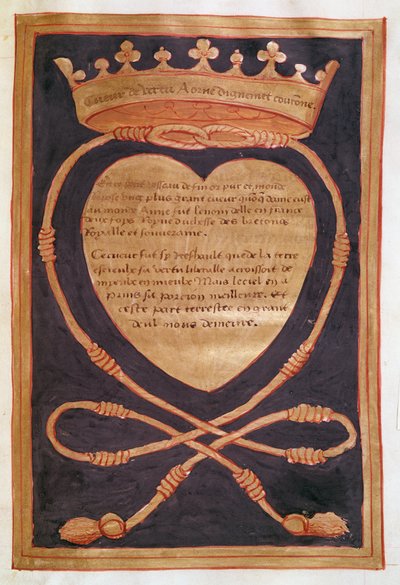 Cueur de vertu Aorne dignement couronne
En ce petit vesseau de fin or pur et monde
repose ung plus grant cueur que oncq dame eust
au monde Anne fut le nom delle en france
deux fops Ropne duchesse des bretons
Ropalle et souveraine.
Ce cueur fut sp treshault que de la terre
es cieulx sa vertu liberalle acroissoit de
mieulx en mieulx Mais le ciel en a
prins sa porcion meilleure. Et
ceste part terrestre en grant
deul nous demeure.